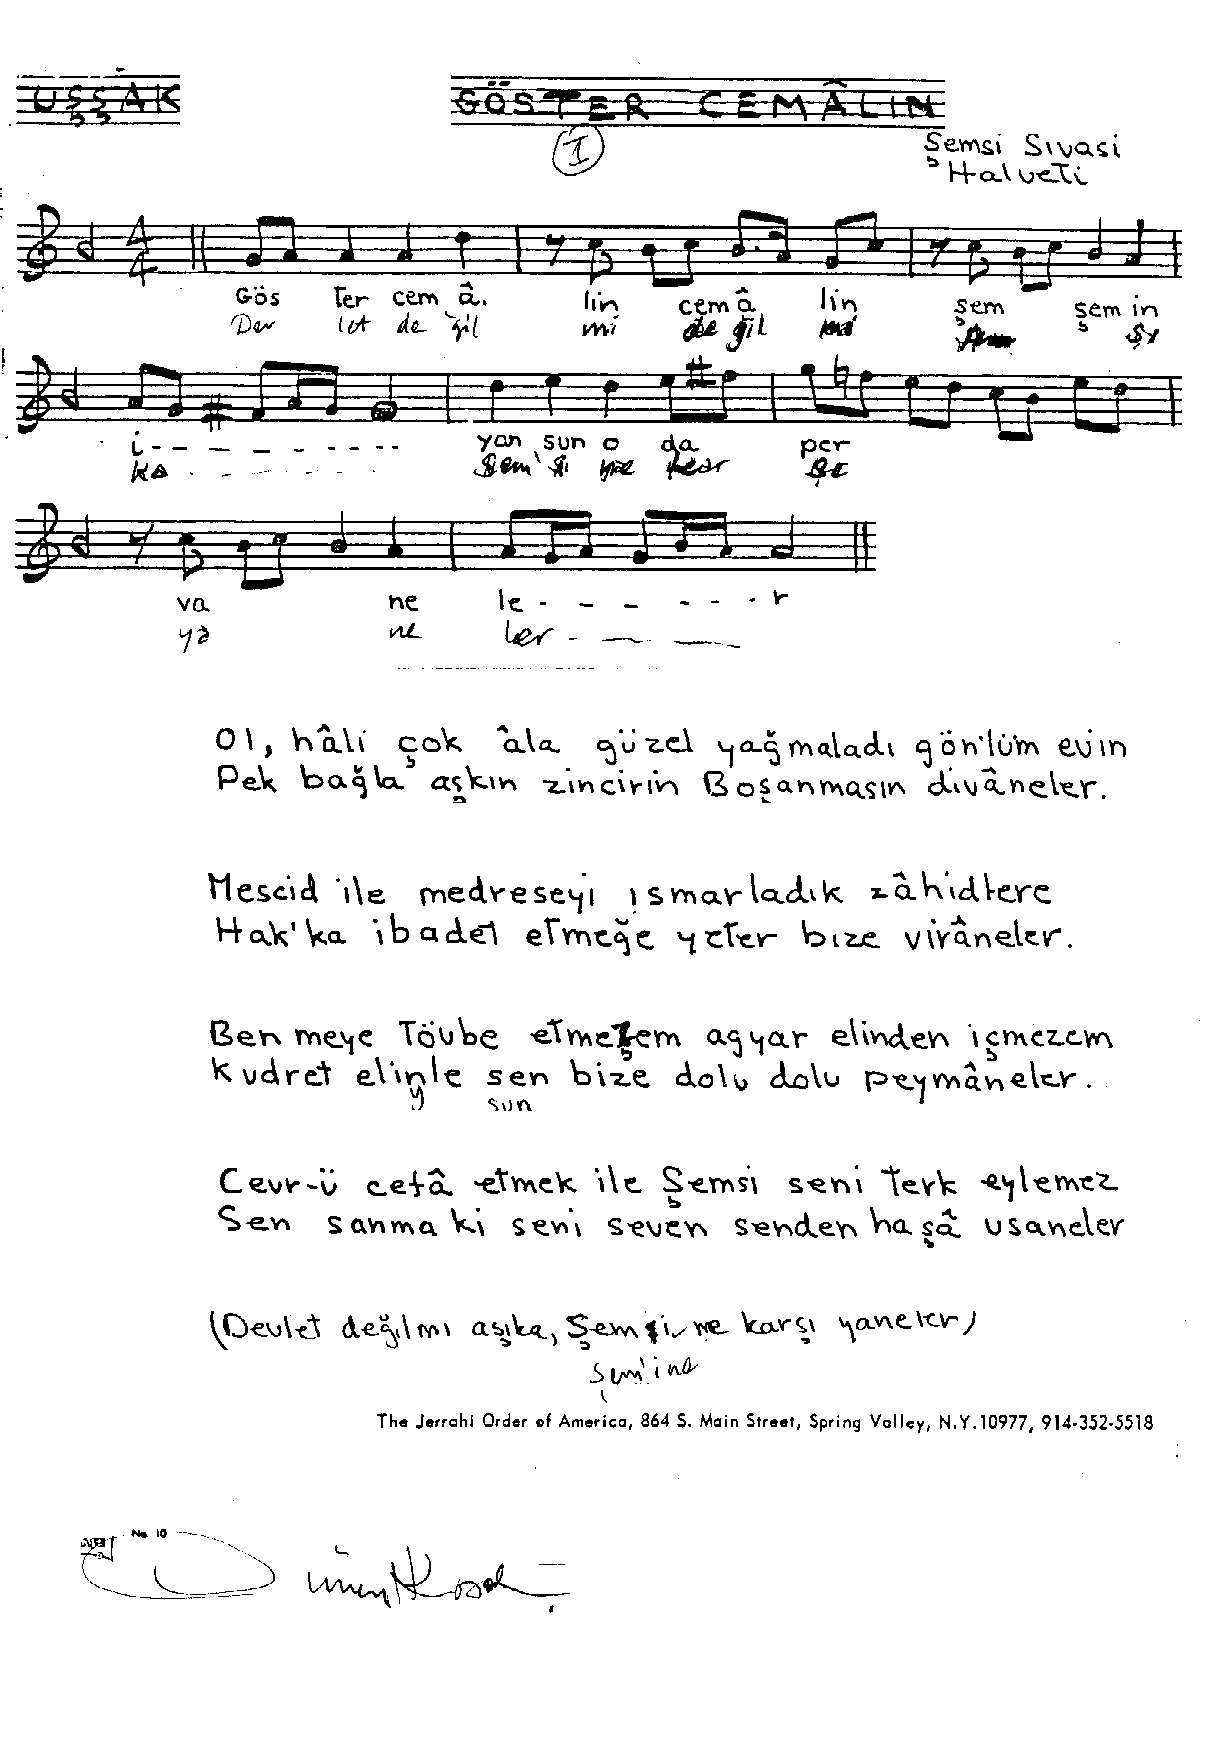 UŞŞÂK
GÖSTER CEMÂLIN
I
Şemsi Sıvasi
Halveti
4
4
Gös ter cem â. lin cem â lin şem şem in
Dev let de ğil mi de ğil mi Şı
i- - - - - - - - yan sun o da per
ka - - - - - - - ne kar şı
va ne le - - - - - - r
ya ne ler - - -
Ol, hâli çok âla güzel yağmaladı gönlüm evin
Pek bağla aşkın zincirin Boşanmasın divâneler.
Mescid ile medreseyi ısmarladık zâhidlere
Hak'ka ibadet etmeğe yeter bize virâneler.
Ben meye Tövbe etmezem agyar elinden içmezem
Kudret elinle sen bize dolu dolu peymâneler.
y sun
Cevr-ü cefâ etmek ile Şemsi seni Terk eylemez
Sen sanma ki seni seven senden haşâ usaneler
(Devlet değılmı aşıka, Şemsi ne karşı yaneler)
Şem'ine
The Jerrahi Order of America, 864 S. Main Street, Spring Valley, N.Y. 10977, 914-352-5518
No 10